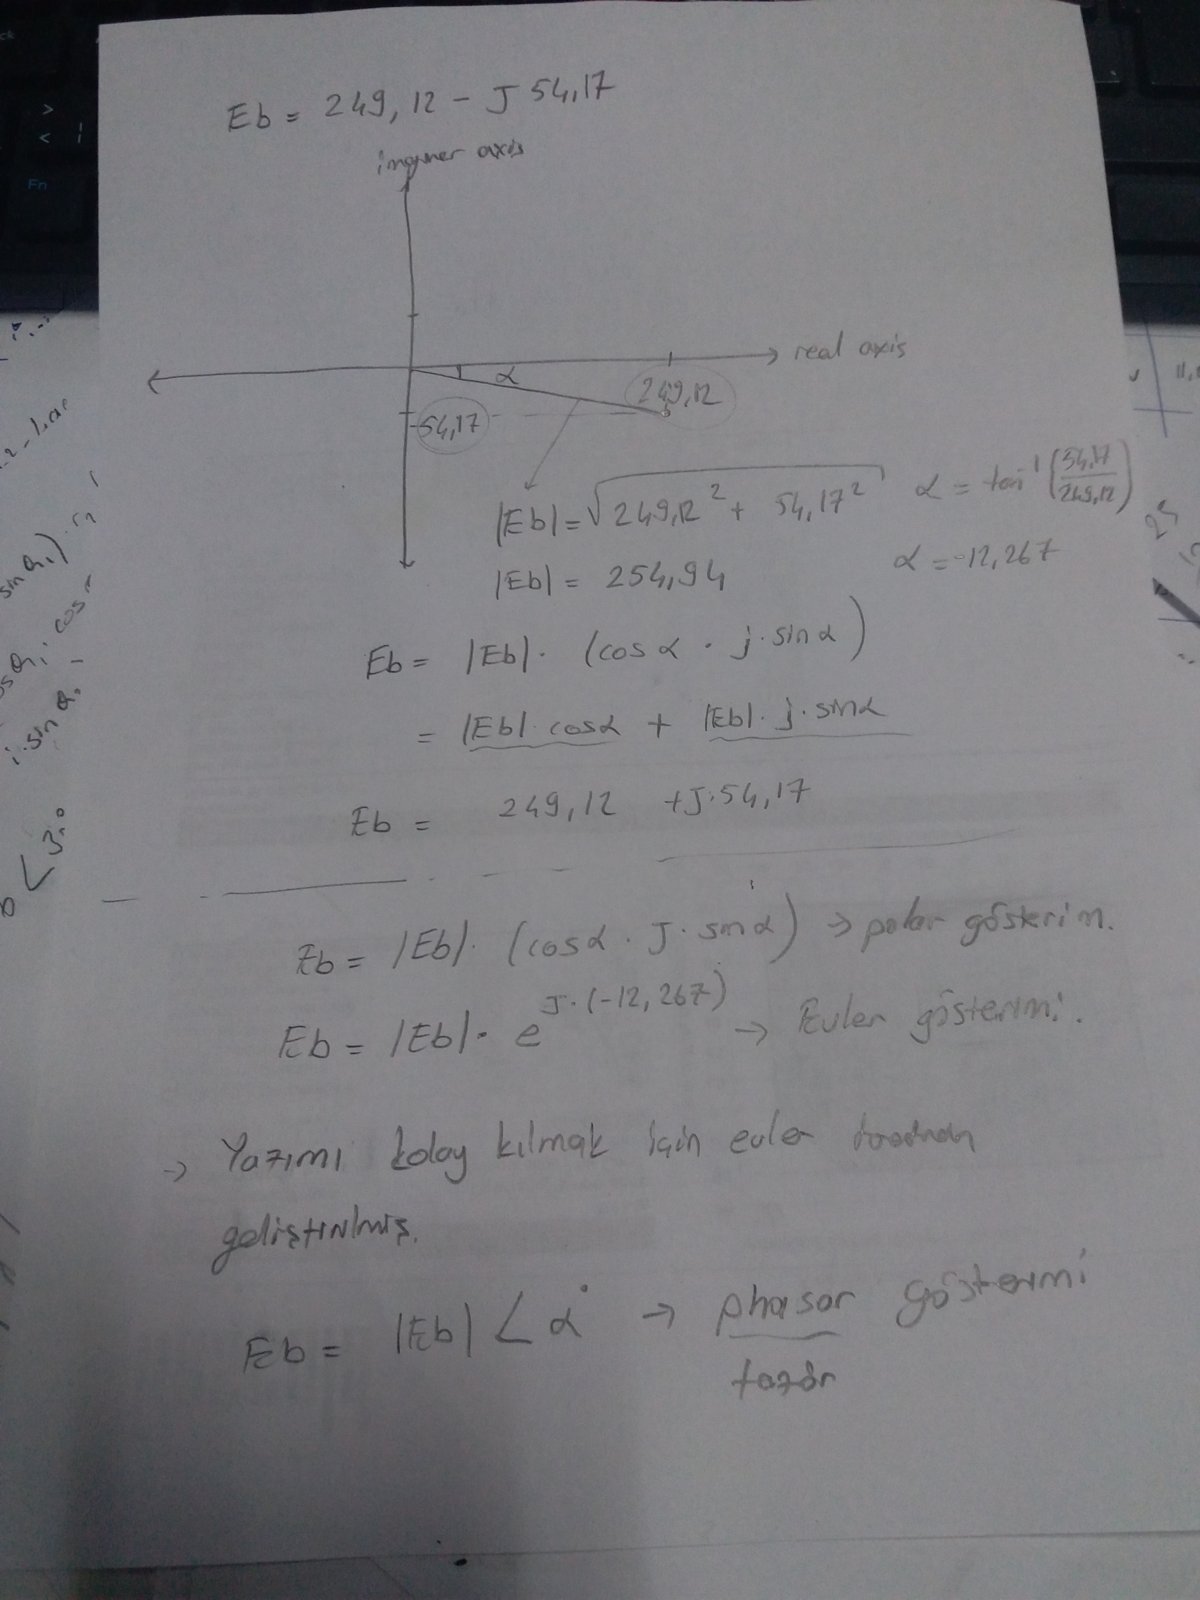 Eb = 249,12 - J 54,17
imajiner axis
real axis
α
249,12
-54,17
|Eb| = √249,12² + 54,17²
α = tan⁻¹ (54,17/249,12)
|Eb| = 254,94
α = -12,267
Eb = |Eb| · (cosα · j·sinα)
= |Eb|·cosα + |Eb|·j·sinα
Eb = 249,12 +J·54,17
Eb = |Eb|· (cosα · J·sinα) → polar gösterim.
Eb = |Eb|· e^J·(-12,267) → Euler gösterimi.
→ Yazımı kolay kılmak için euler
geliştirilmiş.
Eb = |Eb| ∠ α° → phasor gösterimi
fazör